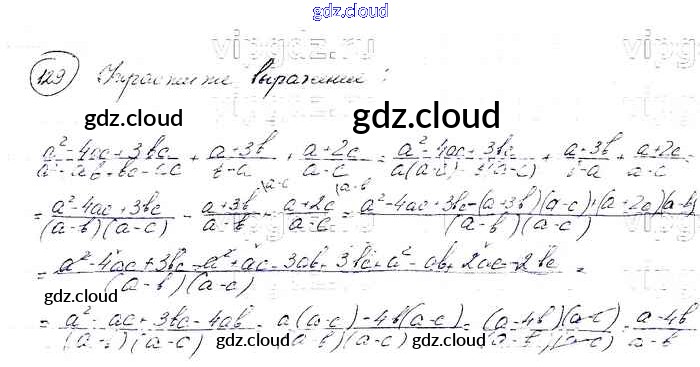 gdz.cloud
vipgdz.ru
129 Упростите выражение:
gdz.cloud
gdz.cloud
(a² - 4ac + 3bc)/(a² - ab + bc - ac) + (a + 3b)/(b - a) + (a + 2c)/(a - c) = (a² - 4ac + 3bc)/(a(a-c) - b(a-c)) + (a + 3b)/(b - a) + (a + 2c)/(a - c) =
= (a² - 4ac + 3bc)/((a-b)(a-c)) - (a + 3b)/(a - b) \a-c + (a + 2c)/(a - c) \a-b = (a² - 4ac + 3bc - (a+3b)(a-c) + (a+2c)(a-b))/((a-b)(a-c))
= (a² - 4ac + 3bc - a² + ac - 3ab + 3bc + a² - ab + 2ac - 2bc)/((a-b)(a-c)) =
gdz.cloud
gdz.cloud
= (a² - ac + 3bc - 4ab)/((a-b)(a-c)) = (a(a-c) - 4b(a-c))/((a-b)(a-c)) = ((a-4b)(a-c))/((a-b)(a-c)) = (a-4b)/(a-b)
gdz.cloud